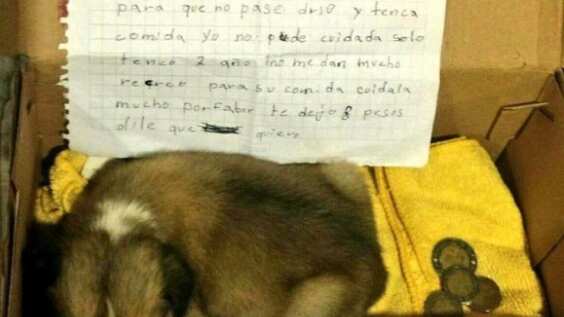 para que no pase drsO y tenca
comida yo no puede cuidada solo
tenco 2 año ino me dan mucho
recrco para su comida cuidala
mucho porfaber te dejo 8 pesos
dile que quiero